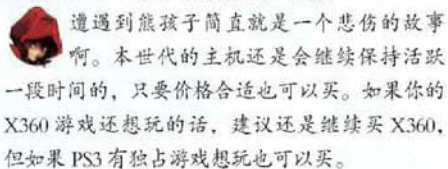 遭遇到熊孩子简直就是一个悲伤的故事
啊。本世代的主机还是会继续保持活跃
一段时间的，只要价格合适也可以买。如果你的
X360 游戏还想玩的话，建议还是继续买 X360，
但如果 PS3 有独占游戏想玩也可以买。